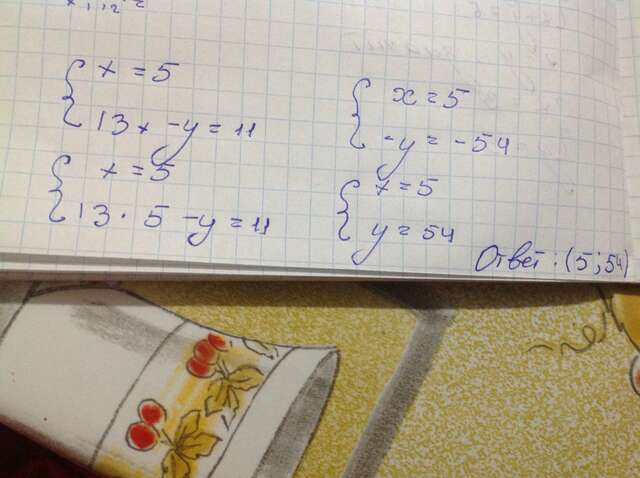 x = 5
13x - y = 11
x = 5
13 · 5 - y = 11
x = 5
-y = -54
x = 5
y = 54
Ответ: (5; 54)